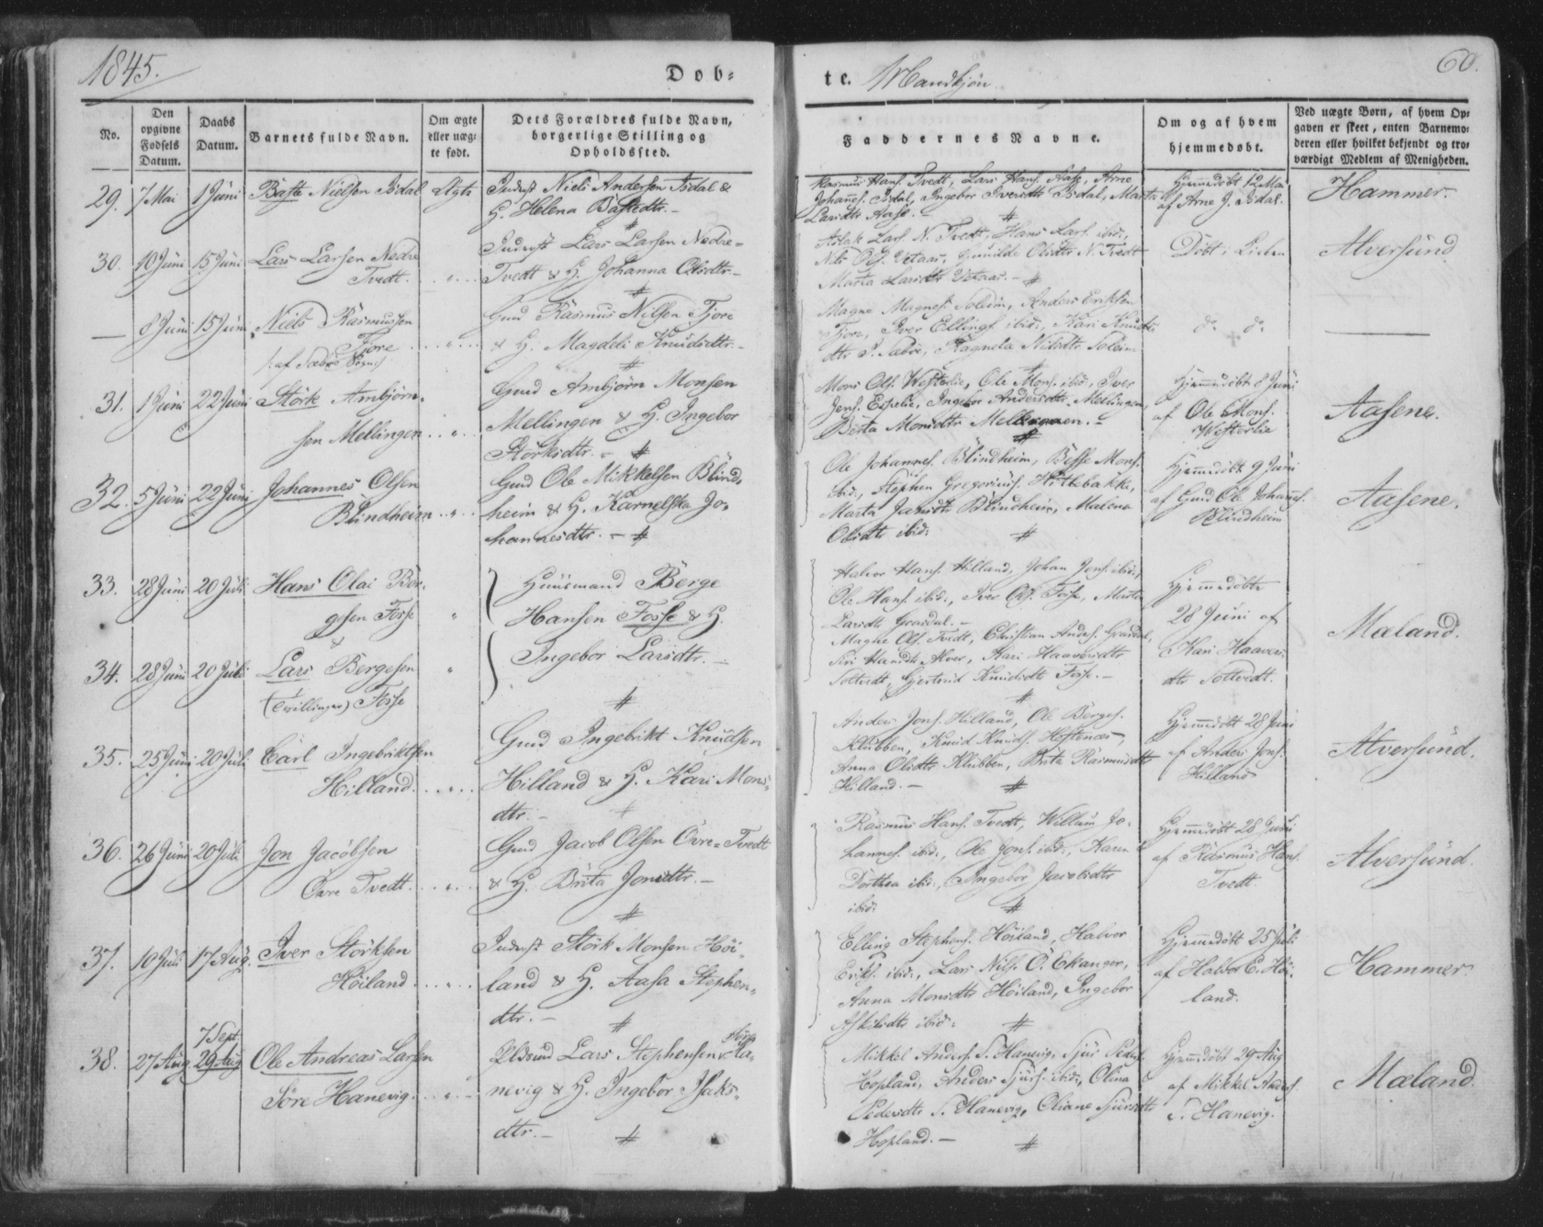 1845.
60.
Dob-
te. Mandkjön.
No.
Den
opgivne
Fødsels
Datum.
Daabs
Datum.
Barnets fulde Navn.
Om ægte
eller uæg-
te født.
Dets Forældres fulde Navn,
borgerlige Stilling og
Opholdssted.
Faddernes Navne.
Om og af hvem
hjemmedøbt.
Ved uægte Børn, af hvem Op-
gaven er skeet, enten Barnemo-
deren eller hvilket bekjendt og tro-
værdigt Medlem af Menigheden.
29. 7 Mai 1 Juni Baste Nielsen Isdal Ægte
Inderst Niels Andersen Isdal &
H. Helena Bastedtr.
Rasmus Hans. Tvedt, Lars Hans. Aase, Arne
Johannes. Isdal, Ingebor Iversdtr Isdal, Marta
Larsdtr Aase.
Hjemmedöbt 12 Mai
af Arne J. Isdal.
Hammer.
30. 10 Juni 15 Juni Lars Larsen Nedre
Tvedt.
Inderst Lars Larsen Nedre-
Tvedt & H. Johanna Olsdtr.
Aslak Lars. N. Tvedt, Hans Lars. ibid.,
Nils Ols. Vetaas, Gunilde Olsdtr N. Tvedt
Marta Larsdtr Vetaas.
Döbt i Kirken
Alversund
— 8 Juni 15 Juni Niels Rasmussen
Fjore
Gmd Rasmus Nilsen Fjore
& H. Magdeli Knudsdtr.
Magne Magnes. Soleim, Anders Eriksen
Fjore, Iver Ellings. ibid., Kari Knuds-
dtr S. Sæbø, Ragnela Nilsdtr Soleim
do. do.
31. 1 Juni 22 Juni Störk Ambjörn-
sen Mellingen
Gmd Ambjörn Monsen
Mellingen & H. Ingebor
Störksdtr.
Mons Ols. Westerlie, Ole Mons. ibid., Iver
Jens. Espelie, Ingebor Andersdtr Mellingen,
Berta Monsdtr Mellingen.
Hjemmedöbt 8 Juni
af Ole Mons.
Westerlie
Aasene.
32. 5 Juni 22 Juni Johannes Olsen
Blindheim
Gmd Ole Mikkelsen Blind-
heim & H. Karnelska Jo-
hannesdtr.
Ole Johannes. Blindheim, Bösse Mons.
ibid., Stephen Gregorius. Hillebakke,
Marta Jansdtr Blindheim, Malena
Olsdtr ibid.
Hjemmedöbt 9 Juni
af Gmd Ole Johannes.
Blindheim
Aasene.
33. 28 Juni 20 Juli Hans Olai Bör-
gesen Fosse
Huusmand Börge
Hansen Fosse & H.
Ingebor Larsdtr.
Halvor Hans. Hilland, Johan Jens. ibid.,
Ole Hans. ibid., Iver Ols. Fosse, Marta
Larsdtr Grasdal.
Hjemmedöbte
28 Juni af
Kari Haavers-
dtr Toltvedt.
Mæland.
34. 28 Juni 20 Juli Lars Börgesen
(Tvillinger) Fosse
Magne Ols. Tvedt, Christian Anders. Grasdal,
Siri Hansdtr Alver, Kari Haaversdtr
Toltvedt, Gjertrud Knudsdtr Fosse.
35. 25 Juni 20 Juli Carl Ingebriktsen
Hilland.
Gmd Ingebrikt Knudsen
Hilland & H. Kari Mons-
dtr.
Anders Jons. Hilland, Ole Börges.
Klubben, Knud Knuds. Hoftenæs,
Anna Olsdtr Klubben, Brita Rasmusdtr
Hilland.
Hjemmedöbt 28 Juni
af Anders Jons.
Hilland
Alversund.
36. 26 Juni 20 Juli Jon Jacobsen
Övre Tvedt.
Gmd Jacob Olsen Övre-Tvedt
& H. Brita Jonsdtr.
Rasmus Hans. Tvedt, Willum Jo-
hannes. ibid., Ole Jons. ibid., Karen
Dorthea ibid., Ingebor Jacobsdtr
ibid.
Hjemmedöbt 28 Juni
af Rasmus Hans.
Tvedt
Alversund.
37. 10 Juli 17 Aug. Iver Störksen
Höiland
Inderst Störk Monsen Höi-
land & H. Aasa Stephen-
dtr.
Elling Stephens. Höiland, Halvor
Eriks. ibid., Lars Nils. Ö. Ekanger,
Anna Monsdtr Höiland, Ingebor
Asksdtr ibid.
Hjemmedöbt 25 Juli
af Halvor E. Höi-
land.
Hammer
38. 27 Aug 7 Sept.
29 Aug Ole Andreas Larsen
Söre Hanevig
Lars Stephensen Söre Ha-
nevig & H. Ingebor Isaks-
dtr.
Mikkel Anders. S. Hanevig, Sjur Peders.
Hopland, Anders Sjurs. ibid., Olina
Pedersdtr S. Hanevig, Oliane Sjursdtr
Hopland.
Hjemmedöbt 29 Aug
af Mikkel Anders.
S. Hanevig.
Mæland.